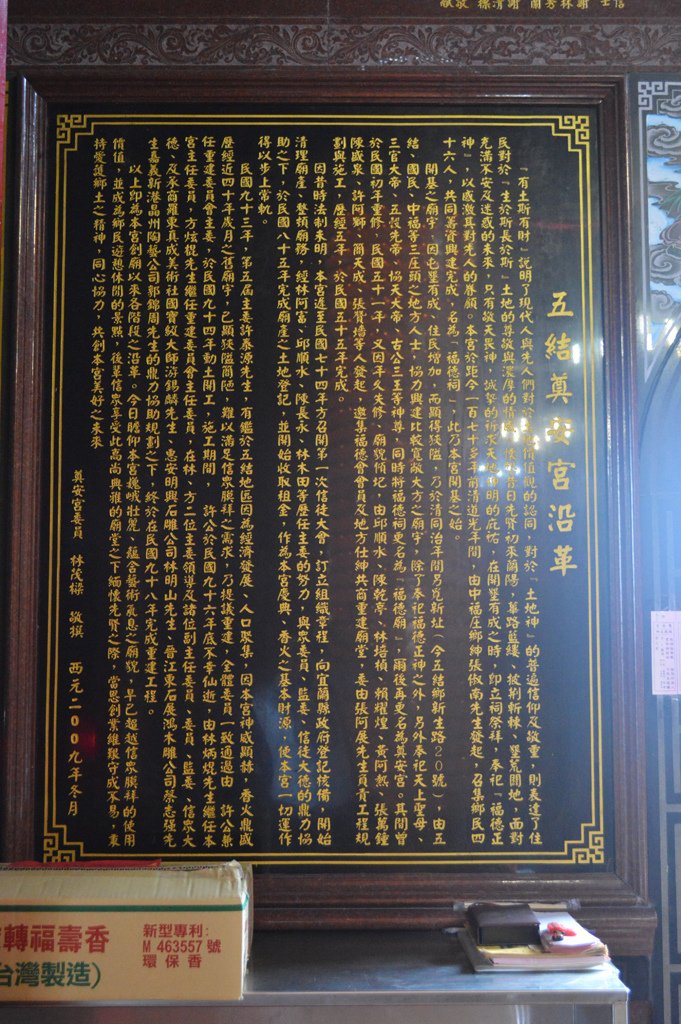 五結奠安宮沿革
『有土斯有財』說明了現代人與先人們對於土地價值觀的認同，對於『土地神』的普遍信仰及敬重，則表達了住
民對於『生於斯長於斯』土地的尊敬與濃厚的情感。懷念昔日先賢初來蘭陽，篳路藍縷、披荊斬棘、墾荒闢地，面對
充滿不安及迷惑的未來，只有敬天畏神，誠摯的祈求天地神明的庇祐，在開墾有成之時，即立祠祭拜，奉祀『福德正
神』，以感激其對先人的眷顧。本宮於距今一百七十多年前清道光年間，由中福庄鄉紳張俶南先生發起，召集鄉民四
十六人，共同籌資興建完成，名為「福德祠」，此乃本宮開基之始。
開基之廟宇，因屯墾有成，住民增加，而顯得狹隘，乃於清同治年間另覓新址（今五結鄉新生路20號），由五
結、國民、中福等三庄頭之地方人士，協力興建比較寬敞大方之廟宇，除了奉祀福德正神之外，另外奉祀天上聖母、
三官大帝、五穀先帝、協天大帝、古公三王等神尊，同時將福德祠更名為『福德廟』，爾後再更名為奠安宮。其間曾
於民國初年重修，民國五十一年，又因年久失修，廟貌傾圮，由邱順水、陳乾亭、林培楨、賴耀煌、黃阿熱、張萬鐘
陳盛泉、許阿獅、簡天成、張賢墻等人發起，邀集福德會會員及地方仕紳共商重建廟堂，委由張阿展先生負責工程規
劃與施工，歷經五年，於民國五十五年完成。
因昔時法制未明，本宮遲至民國七十四年方召開第一次信徒大會，訂立組織章程，向宜蘭縣政府登記核備，開始
清理廟產、整頓廟務，經林阿富、邱順水、陳長永、林木田等歷任主委的努力，與眾委員、監委、信徒大德的鼎力協
助之下，於民國八十五年完成廟產之土地登記，並開始收取租金，作為本宮慶典、香火之基本財源，使本宮一切運作
得以步上常軌。
民國九十三年，第五屆主委許泰源先生，有鑑於五結地區因為經濟發展、人口聚集，因本宮神威顯赫，香火鼎盛
歷經近四十年歲月之舊廟宇，已顯狹隘簡陋，難以滿足信眾膜拜之需求，乃提議重建，全體委員一致通過由 許公兼
任重建委員會主委，於民國九十四年動土開工，施工期間， 許公於民國九十六年底不幸仙逝，由林炳焜先生繼任本
宮主任委員，方炫棍先生繼任重建委員會主任委員，在林、方二位主委領導及諸位副主任委員、委員、監委、信眾大
德、及承商羅東巨成美術社國寶級大師游錫麟先生、惠安明興石雕公司林明山先生、晉江東石展鴻木雕公司蔡志強先
生嘉義新港晶洲陶藝公司郭錦周先生的鼎力協助規劃之下，終於在民國九十八年完成重建工程。
以上即為本宮創廟以來各階段之沿革。今日瞻仰本宮巍峨壯麗、蘊含藝術氣息之廟貌，早已超越信眾膜拜的使用
價值，並成為鄉民遊憩休閒的景點，後輩信眾享受此高尚典雅的廟堂之下緬懷先賢之際，當思創業維艱守成不易，秉
持愛護鄉土之精神，同心協力，共創本宮美好之未來
奠安宮委員 林茂樑 敬撰 西元二00九年冬月
轉福壽香
台灣製造)
新型專利:
M 463557 號
環保香